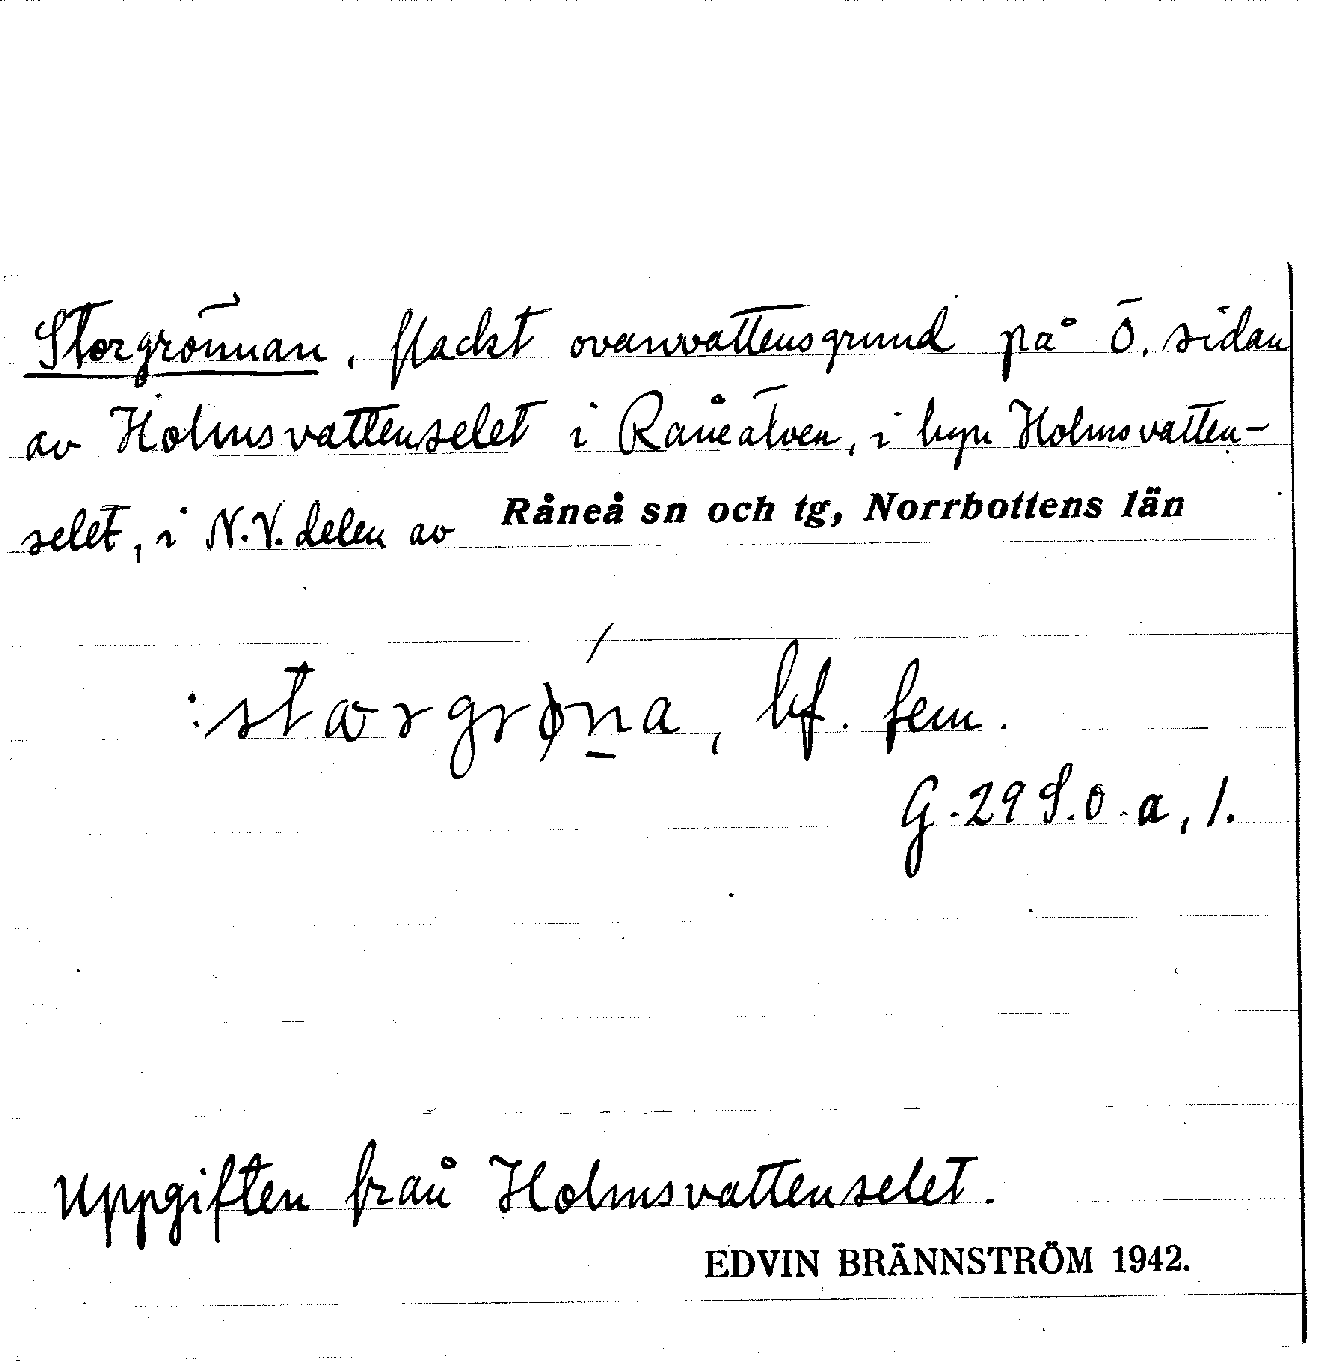 Storgrönnan, flackt ovanvattensgrund på Ö. sidan
av Holmsvattenselet i Råneälven, i byn Holmsvatten-
selet, i N.V. delen av Råneå sn och tg, Norrbottens län
:storgrøn̲a, bf. fem.
G.29 S.O.a,1.
Uppgiften från Holmsvattenselet.
EDVIN BRÄNNSTRÖM 1942.